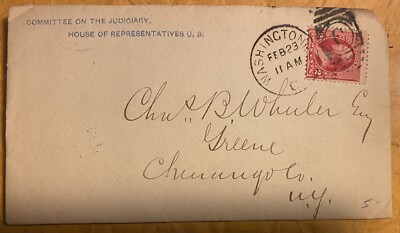 COMMITTEE ON THE JUDICIARY,
HOUSE OF REPRESENTATIVES U. S.
WASHINGTON
FEB 23
11 AM
Chas B. Wheeler Esq
Greene
Chenango Co.
N.Y.
5-